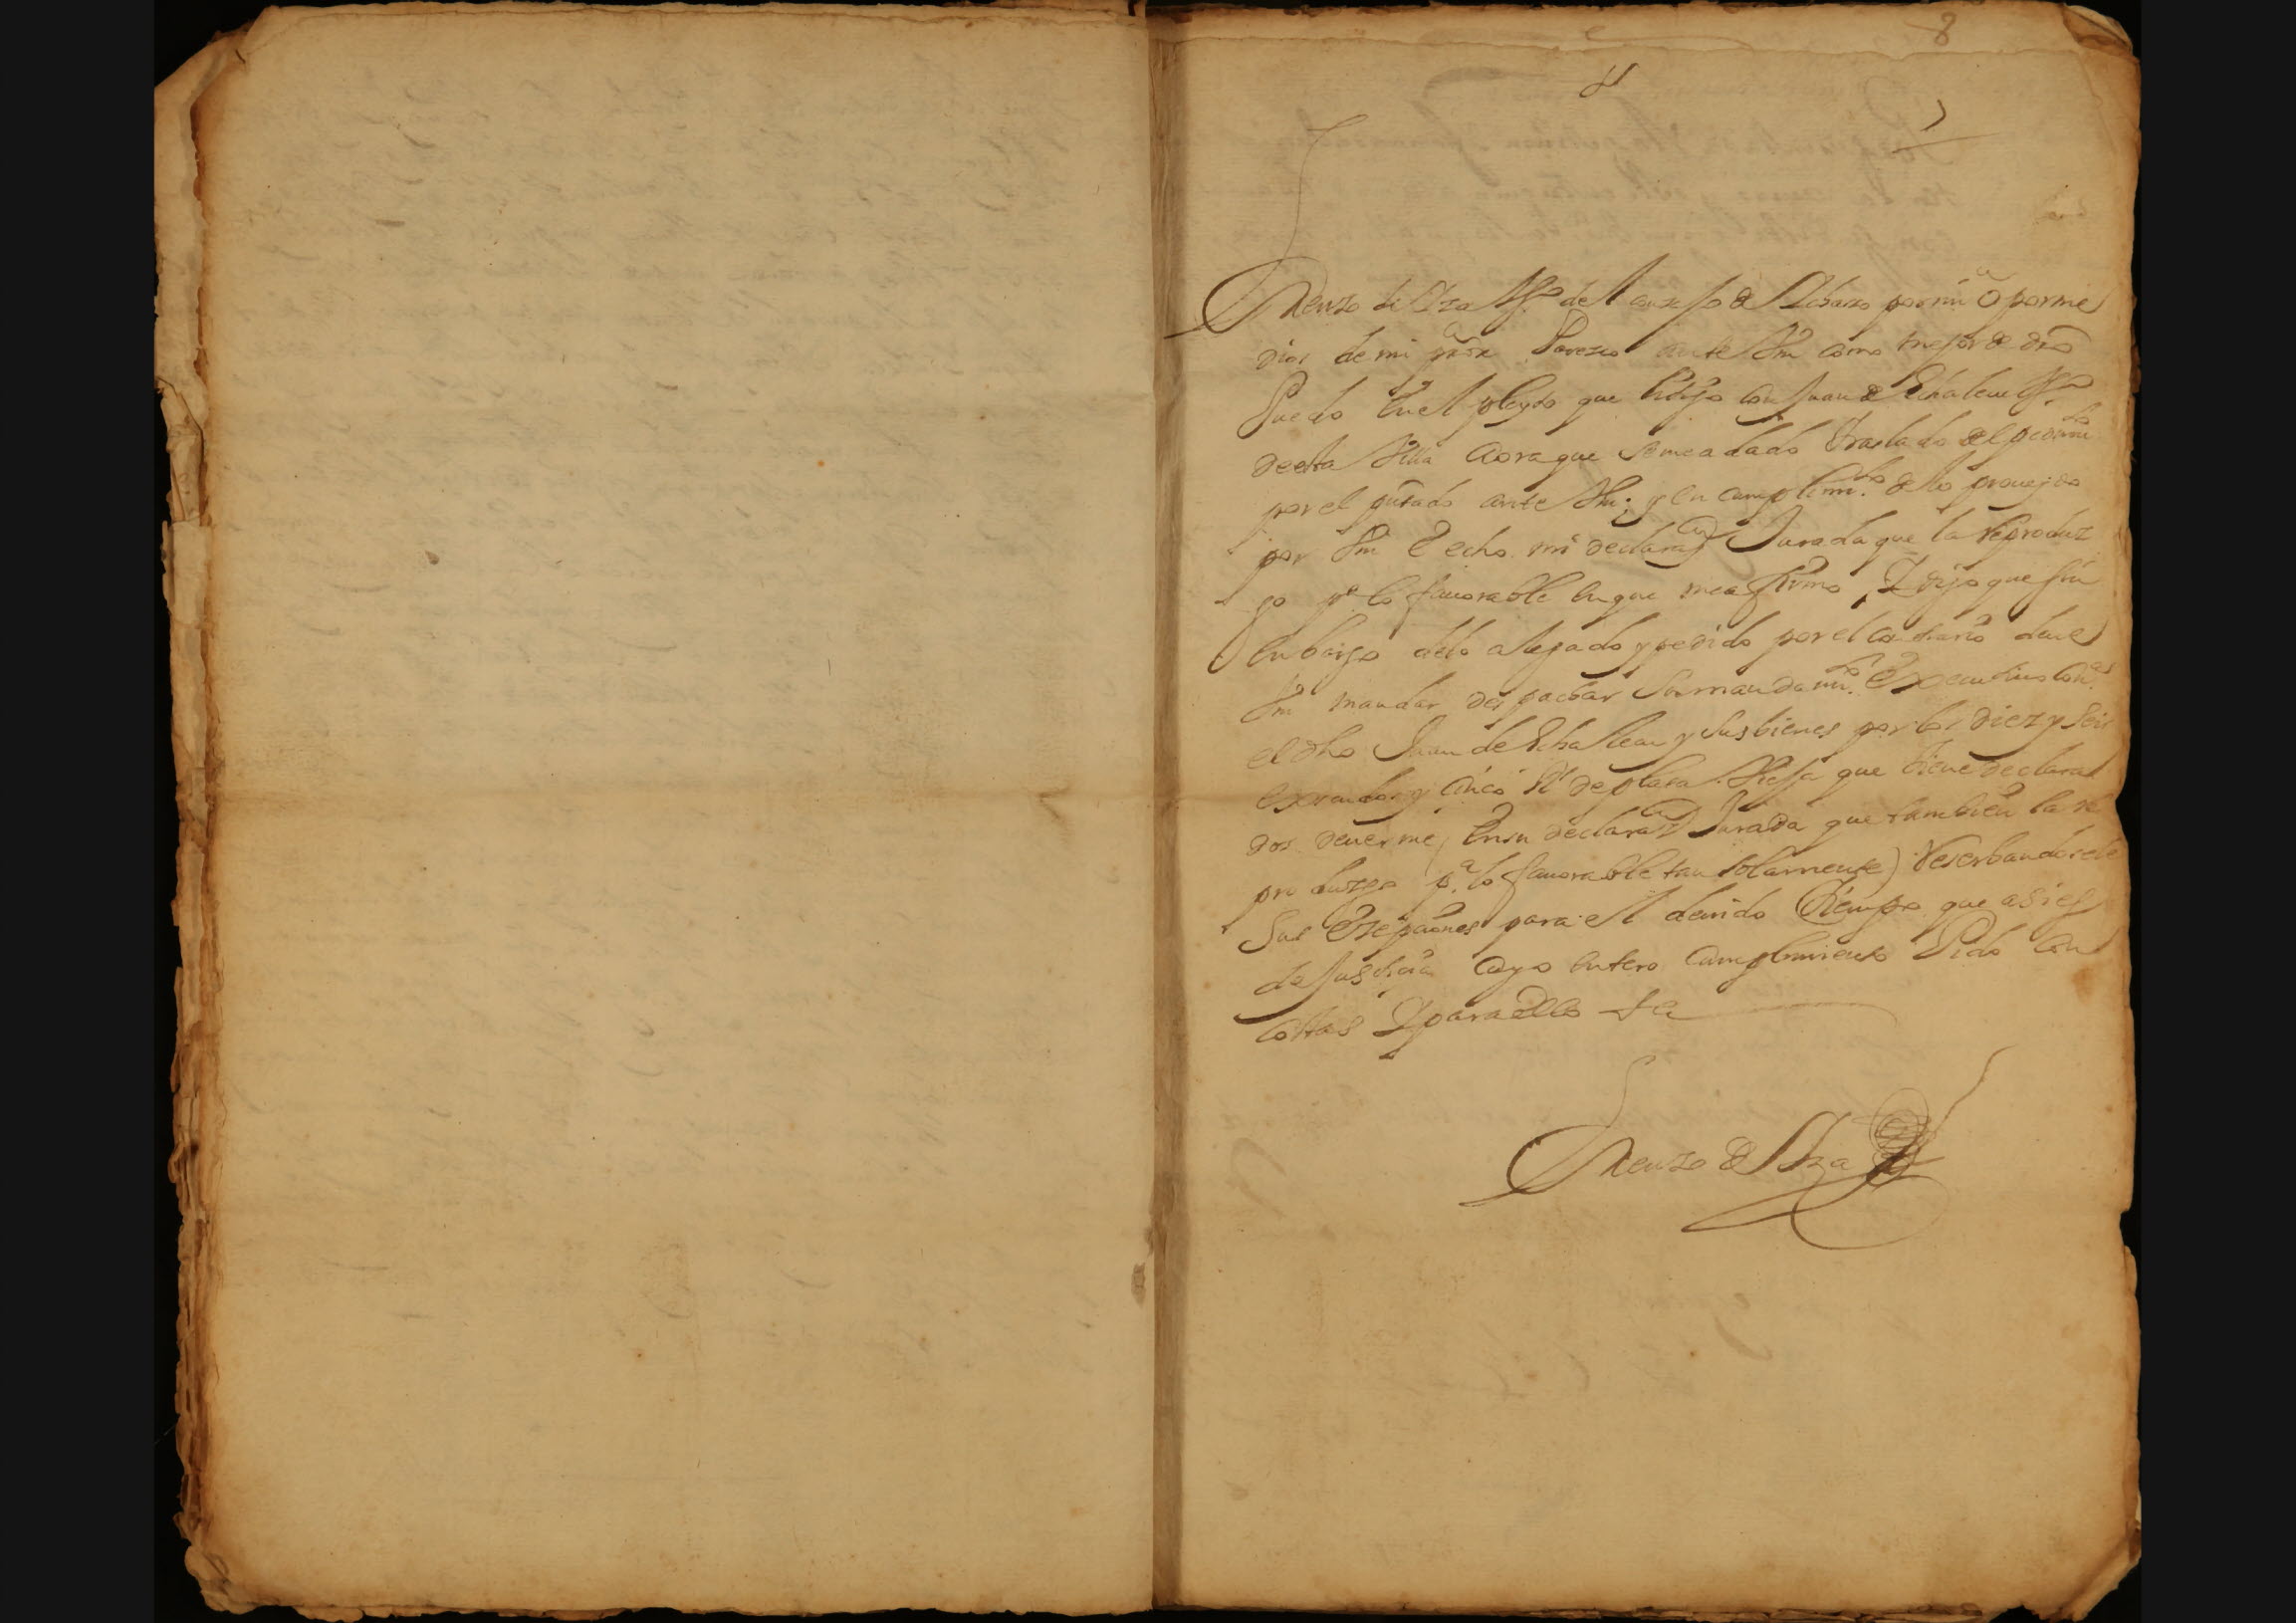 8
7
Renzo de Yza Vº del conzejo de por mi o por me
dios de mi Parezco ante Vm como mejor de dro
Puedo en el pleyto que litijo con Juan de Echaleau Vº
de esta Villa aora que se me a dado traslado del pedimto
por el presentado ante Vm; y en cumplimto de lo proueydo
por Vm e echo mi declaraon Jurada que la Reproduz
go pª lo fauorable en que me afirmo, Y dijo que sin
enbargo de lo alegado y pedido por el contrario deue
Vm mandar despachar su mandamto Executiuo contª
el dho Juan de Echaleau y sus bienes por los diez y seis
escudos y cinco Rs de plata Vieja que tiene declara
dos deuerme (en su declaraon Jurada que tambien la re
produzgo pª lo fauorable tan solamente) Reserbandosele
Sus Exepciones para el deuido tiempo que asi es
de Justicia cuyo entero cumplimiento Pido con
costas Y para ello &a
Renzo de Yza